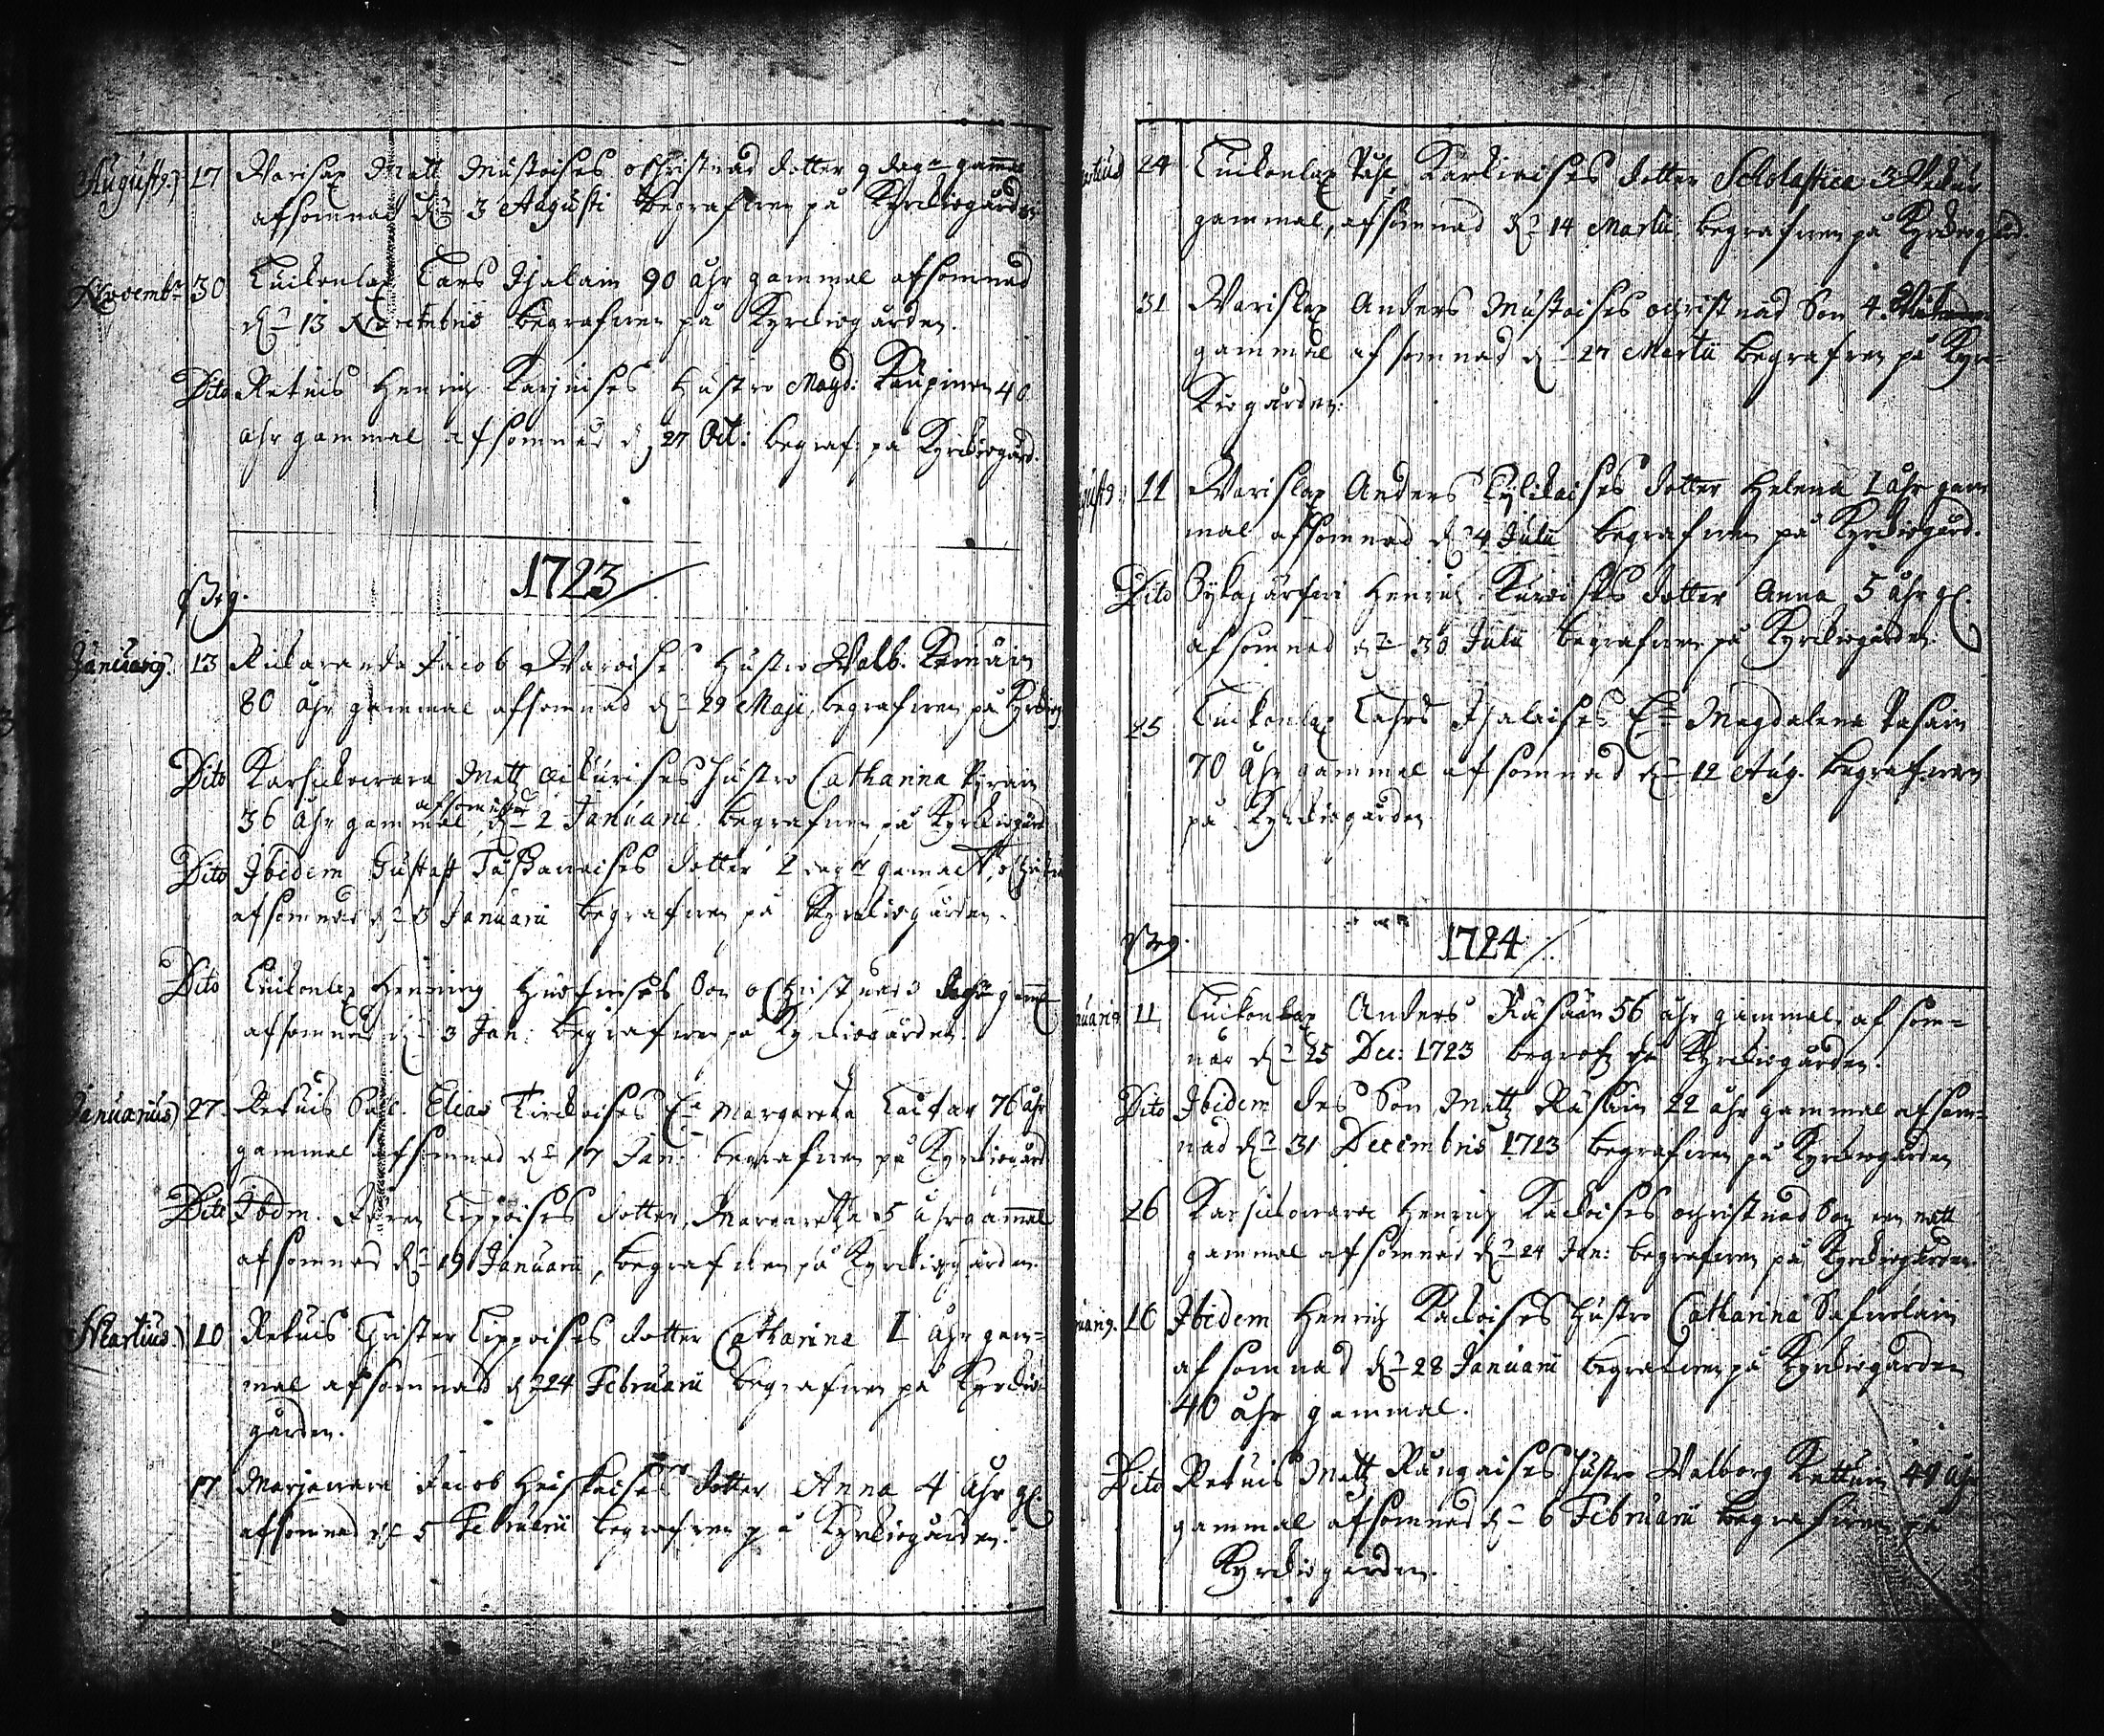 Augusti 17 Warislax Matt Mustoises ochristnad dotter 9 dagr gamal
afsomnad dn 3 Augusti begrafwen på Kyrkiogården
Novembr 30 Luikonlax Lars Ihalain 90 åhr gammal afsomnad
dn 13 Novembris begrafwen på Kyrkiogården.
Dito Retuis Henrich Karjnises Hustro Magd: Kaupinen 40
åhr gammal afsomnad dn 27 Oct: begraf: på Kyrkiogård.
1723
Januarij 13 Rickaranda Jacob Hustro Walb.
80 åhr gammal afsomnad dn 29 Maji, begrafwen på Kyrkiog
Dito Karsickowara Matz Hustro Catharina
36 åhr gammal afsomnad dn 2 Januarii begrafwen på Kyrkiogård
Dito Ibidem Gustaf dotter 2 dagr gamal,
afsomnad dn 3 Januarii begrafwen på Kyrkiogården.
Dito Luikonlax Henning Son ochristnad 3
afsomnad dn 3 Jan: begrafwen på Kyrkiogården.
Januarius 27 Retuis Elias Tirckoises Ea Margareta Lautar 76 åhr
gammal afsomnad dn 17 Jan: begrafwen på Kyrkiogård
Dito Ibdm. Lippoises dotter, Margareta 5 åhr gammal
afsomnad dn 19 Januarii, begrafwen på Kyrkiogården.
Martius 10 Retuis Christer Lippoises dotter Catharina 1 åhr gam=
mal afsomnad dn 24 Februarii begrafwen på Kyrkio
gården.
17 Marjowara Jacob Heiskaises dotter Anna 4 åhr gl.
afsomnad dn 5 Februarii begrafwen på Kyrkiogården.
24 Luikonlax Påhl Karkiaises dotter Scholastica 3 Wekur
gammal, afsomnad dn 14 Martii begrafwen på Kyrkiogård.
31 Warislax Anders Mustoises ochristnad Son 4
gammal afsomnad dn 27 Martii begrafwen på Kyr=
kiogården.
11 Warislax Anders Kylikaises dotter Helena 1 åhr gam
mal afsomnad dn 4 Julii begrafwen på Kyrkiogård.
Dito Öykajärfwi Henrich dotter Anna 5 åhr gl.
afsomnad dn 30 Julii begrafwen på Kyrkiogården
25 Luikonlax Lahrs Ihalaises Ea Magdalena Pasain
70 åhr gammal afsomnad dn 12 Aug. begrafwen
på Kyrkiogården
1724
11 Luikonlax Anders Räsäin 56 åhr gammal, afsom=
nad dn 25 Dec: 1723 begrafn på Kyrkiogården.
Dito Ibidem des Son Matz Räsäin 22 åhr gammal afsom=
nad dn 31 Decembris 1723 begrafwen på Kyrkiogården
26 Karsickowara Henrich Käckoises ochristnad Son en natt
gammal afsomnad dn 24 Jan: begrafwen på Kyrkiogården.
10 Ibidem Henrich Käckoises Hustro Catharina Safwolain
afsomnad dn 28 Januarii begrafwen på Kyrkiogården
40 åhr gammal.
Dito Retuis Matz Hustro Walborg Kettuin 40 åhr
gammal afsomnad dn 6 Februarii begrafwen på
Kyrkiogården.